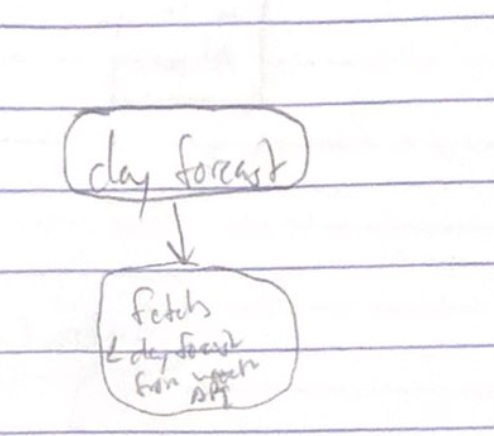 day forcast
fetch
day forcast
from weath
API